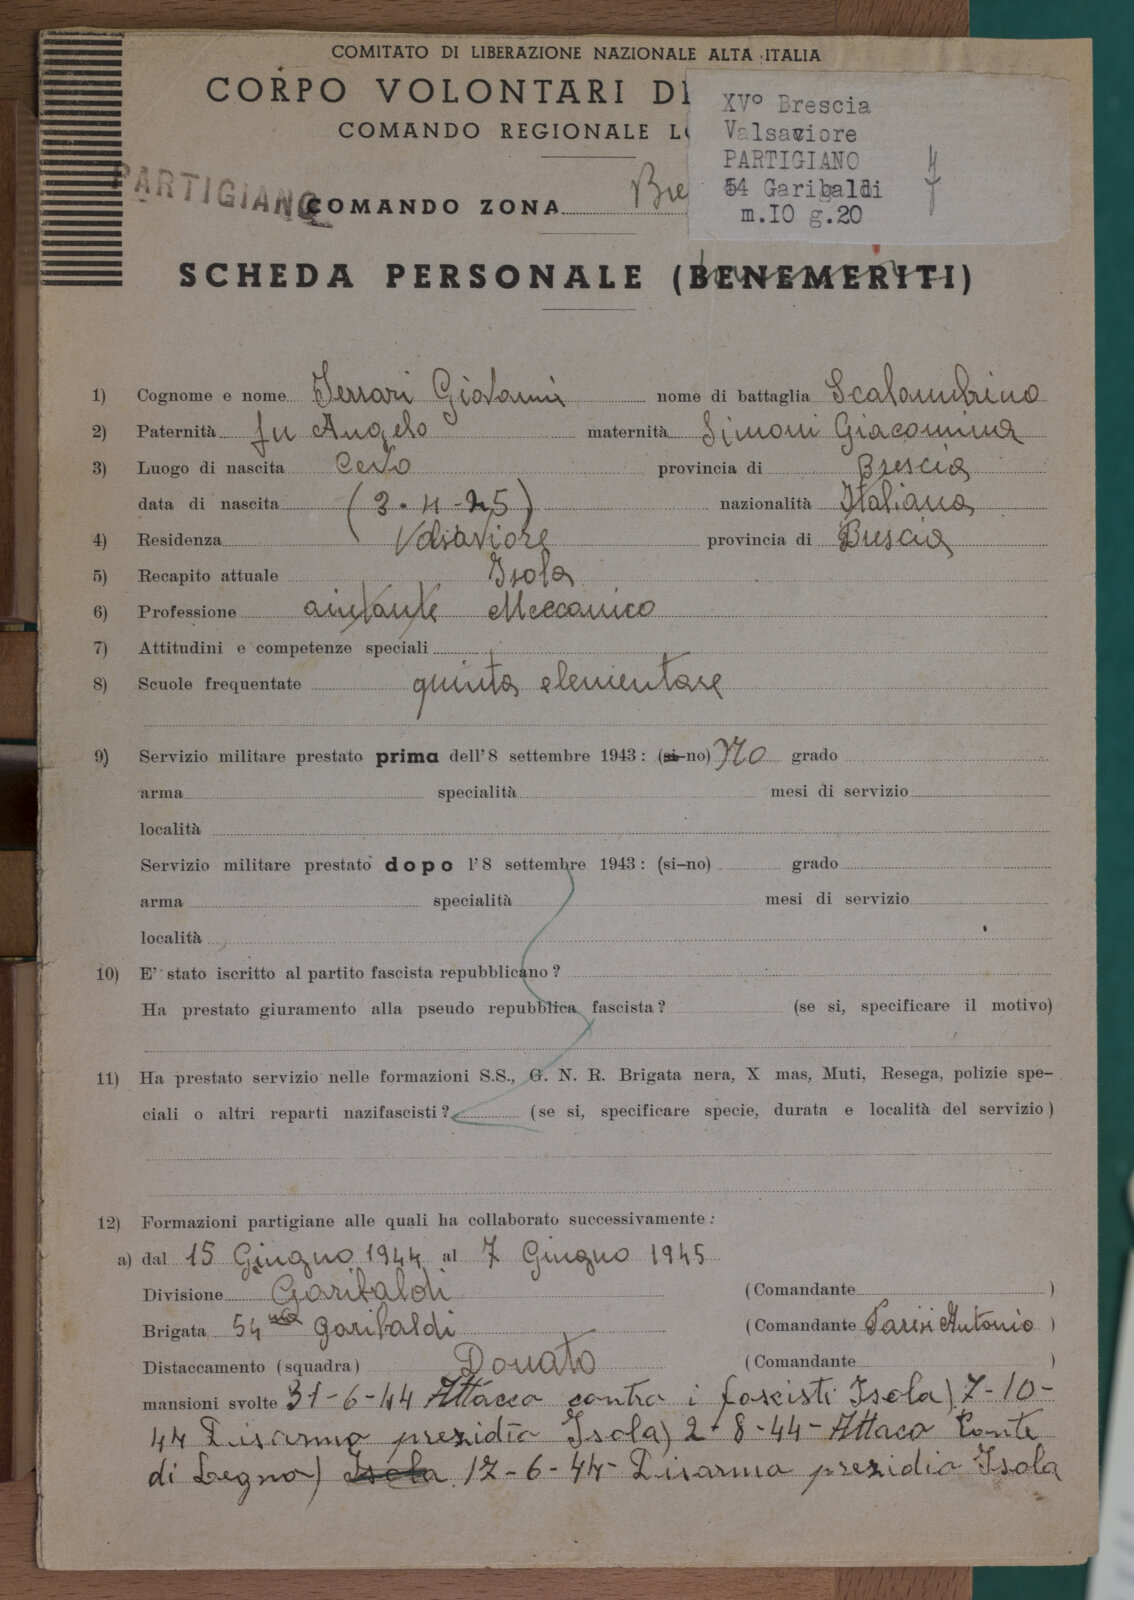 COMITATO DI LIBERAZIONE NAZIONALE ALTA ITALIA
CORPO VOLONTARI DI
COMANDO REGIONALE LO
XV° Brescia
Valsaviore
PARTIGIANO
54 Garibaldi
m.IO g.20
PARTIGIANO
COMANDO ZONA Bre
SCHEDA PERSONALE (BENEMERITI)
1) Cognome e nome Ferrari Giovanni nome di battaglia Scalambrino
2) Paternità fu Angelo maternità Simoni Giacomina
3) Luogo di nascita Cevo provincia di Brescia
data di nascita (3-4-25) nazionalità Italiana
4) Residenza Valsaviore provincia di Brescia
5) Recapito attuale Isola
6) Professione aiutante Meccanico
7) Attitudini e competenze speciali
8) Scuole frequentate quinta elementare
9) Servizio militare prestato prima dell'8 settembre 1943: (si-no) NO grado
arma specialità mesi di servizio
località
Servizio militare prestato dopo l'8 settembre 1943: (si-no) grado
arma specialità mesi di servizio
località
10) E' stato iscritto al partito fascista repubblicano?
Ha prestato giuramento alla pseudo repubblica fascista? (se si, specificare il motivo)
11) Ha prestato servizio nelle formazioni S.S., G. N. R. Brigata nera, X mas, Muti, Resega, polizie spe-
ciali o altri reparti nazifascisti? (se si, specificare specie, durata e località del servizio)
12) Formazioni partigiane alle quali ha collaborato successivamente:
a) dal 15 Giugno 1944 al 7 Giugno 1945
Divisione Garibaldi (Comandante )
Brigata 54 Garibaldi (Comandante Parisi Antonio )
Distaccamento (squadra) Donato (Comandante )
mansioni svolte 31-6-44 Attacco contro i fascisti Isola) 7-10-
44 Disarmo prezidio Isola) 2-8-44- Attaco Ponte
di Legno) Isola 17-6-44- Disarmo prezidio Isola